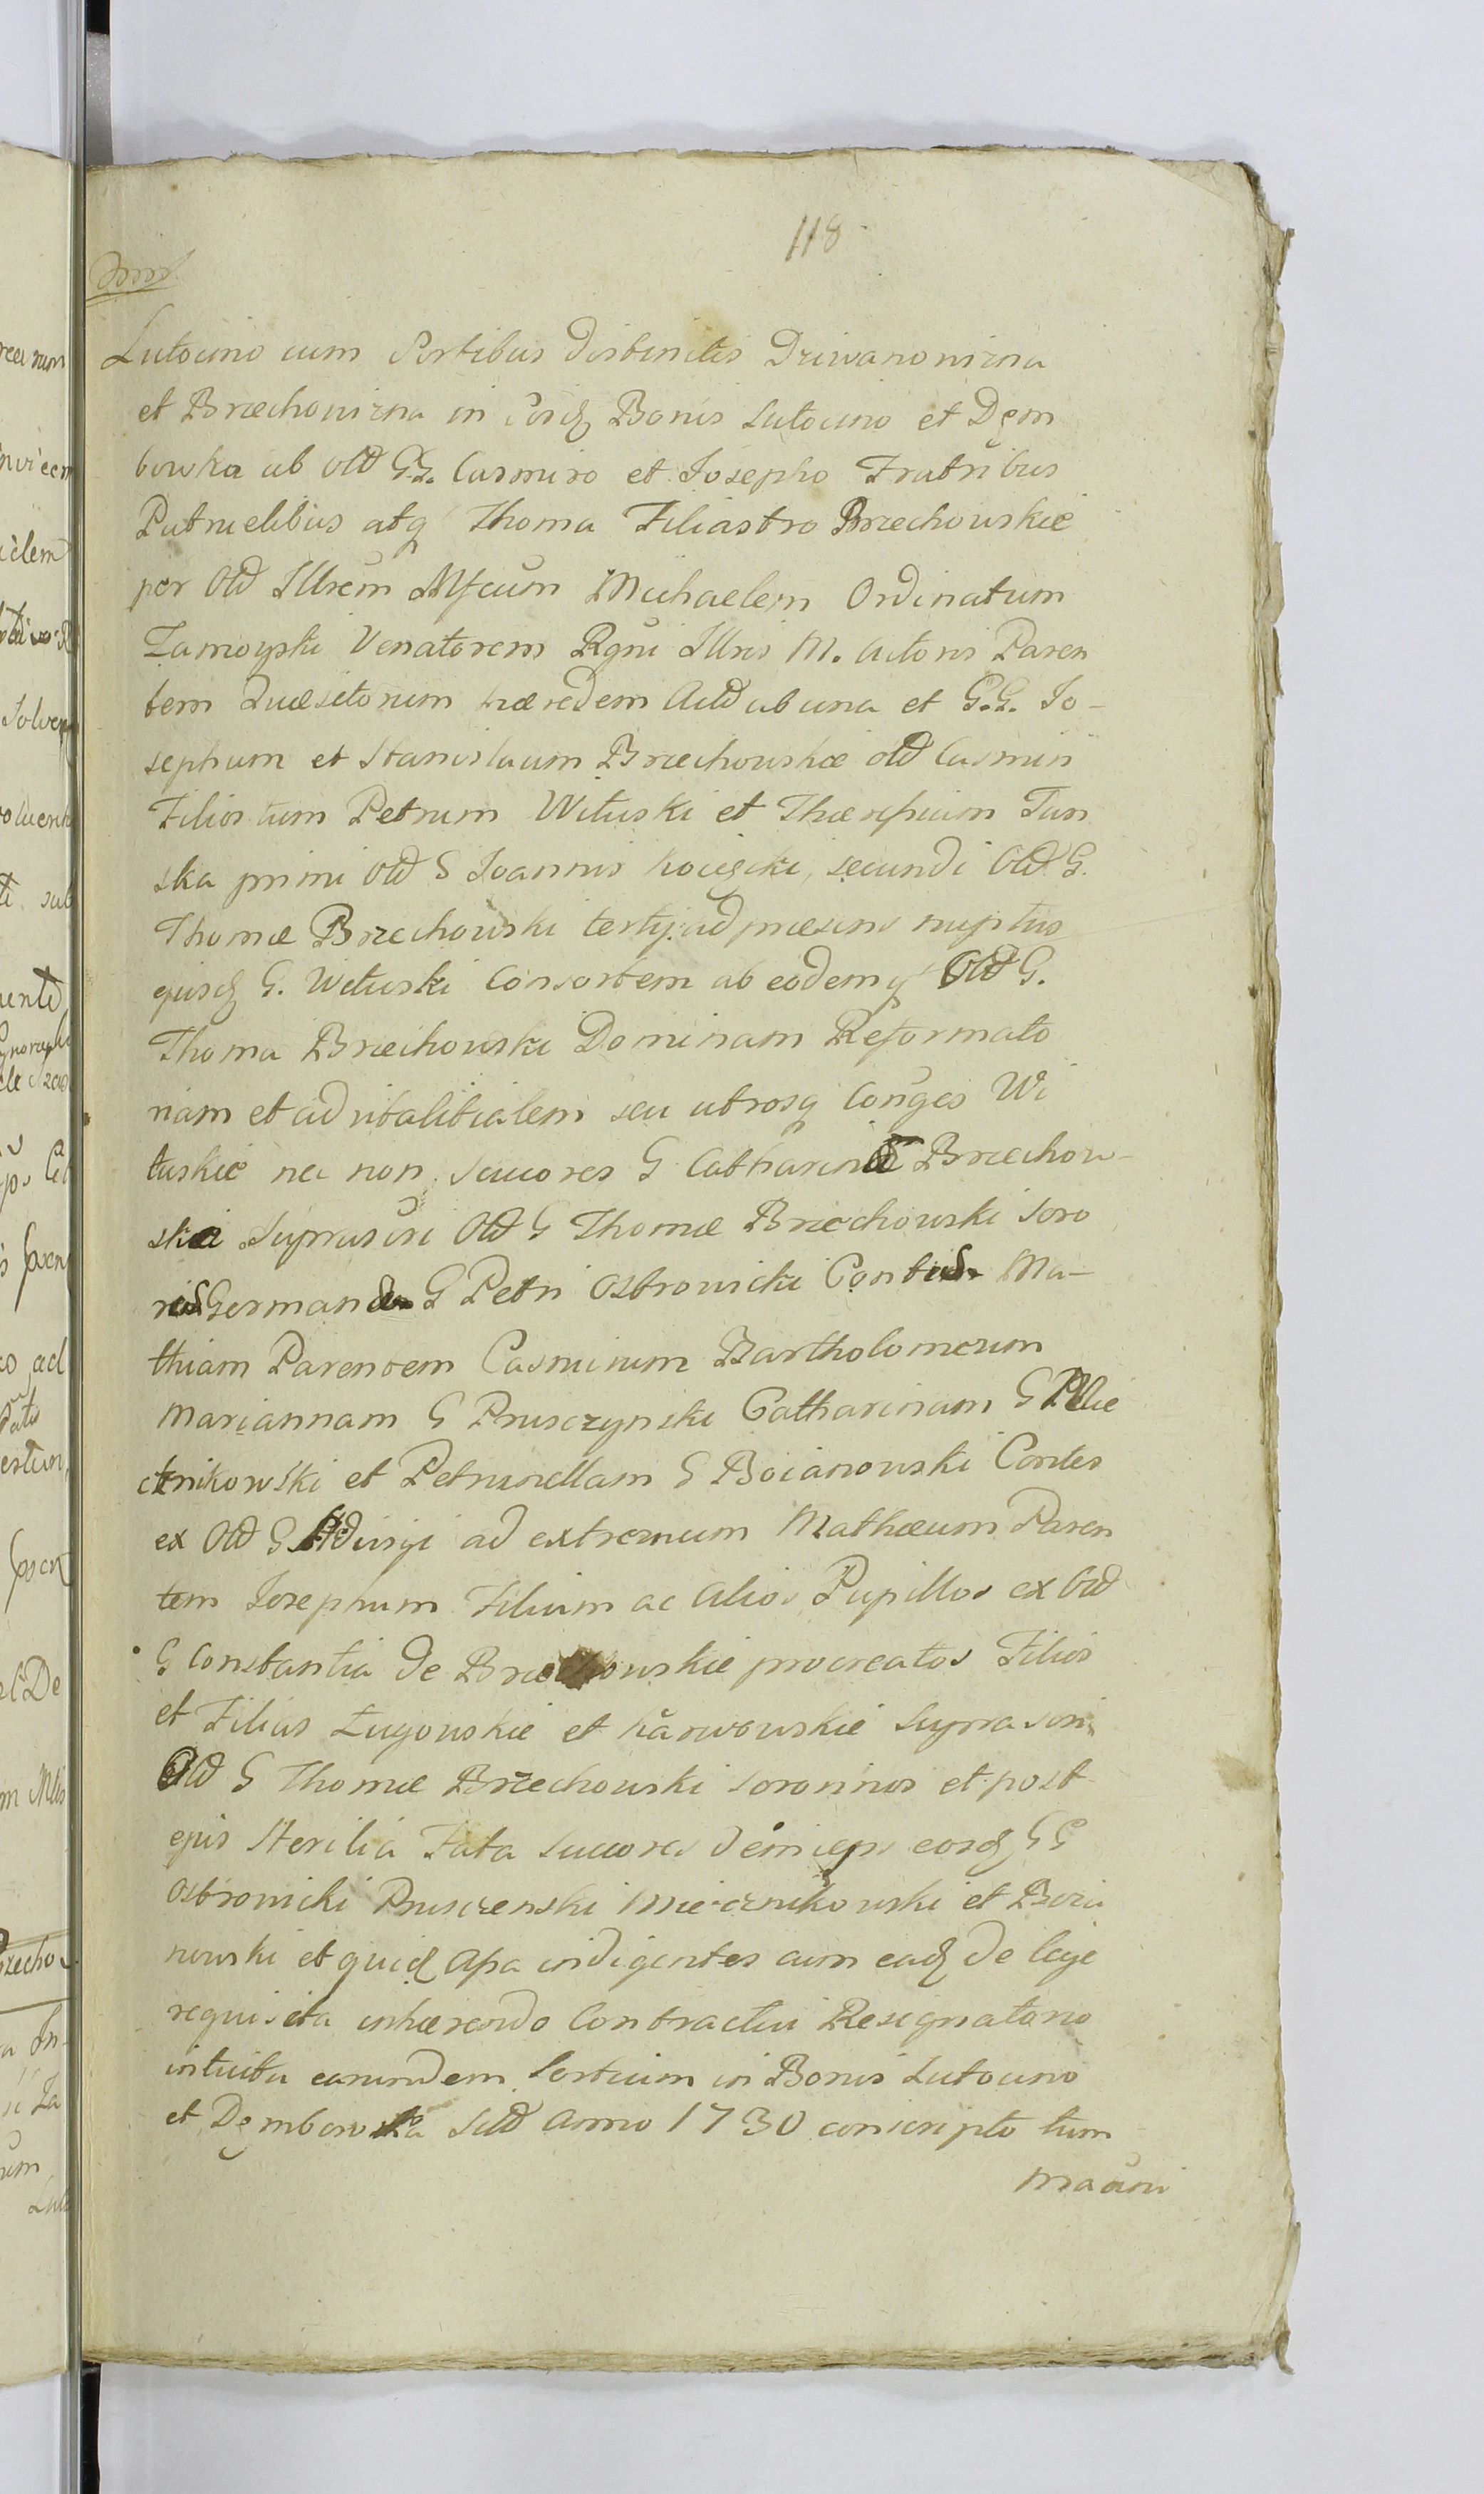 118
Lutocino cum Sortibus distinctis Driwanowizna
et Brzechowizna in iisdq Bonis Lutocino et Dęm
bowka ab olđ G.G. Casimiro et Josepho Fratribus
Patruelibus atq Thoma Filiastro Brzechowskie
per Olđ Illrem Mfcum Michaelem Ordinatum
Zamoyski Venatorem Rgni Illris M. Actoris Paren
tem Quæsitorum hæredem Actđ ab una et G.G. Jo-
sephum et Stanislaum Brzechowskie olđ Casmiri
Filios tum Petrum Wituski et Theresiam Tan
ska primi Olđ G Joannis Kocięcki, secundi Olđ G.
Thomæ Brzechowski tertij ad præsens nuptus
ejusdq G. Wituski Consortem ab eodemq Olđ G.
Thoma Brzechowski Dominam Reformato
riam et advitalitialem seu utrosq Conges Wi
tuskie nec non Succores G Catharinæ Brzechow-
skie Suprascri Olđ G Thomæ Brzechowski Soro
ris Germanæ G Petri Ostrowicki Contis Ma-
thiam Parentem Casmirum Bartholomeum
Mariannam G Prusczynski Catharinam G Mie
cznikowski et Petrunellam G Boianowski Contes
ex Olđ G ad extremum Mathæum Paren
tem Josephum Filium ac alios Pupillos ex Olđ
G Constantia de Brzechowskie procreatos Filios
et Filias Ługowskie et Karwowskie Suprascri
Olđ G Thomæ Brzechowski Sororinos et post
ejus Sterilia Fata Succores deinceps eosdq G G
Ostrowicki Prusczenski Miecznikowski et Boia
nowski et quidq Assa indigentes cum eadq de lege
requisita inhærendo Contractui Resignatorio
intuitu earundem Sortium in Bonis Lutocino
et Dęmbowka Sctđ Anno 1730 conscripto tum